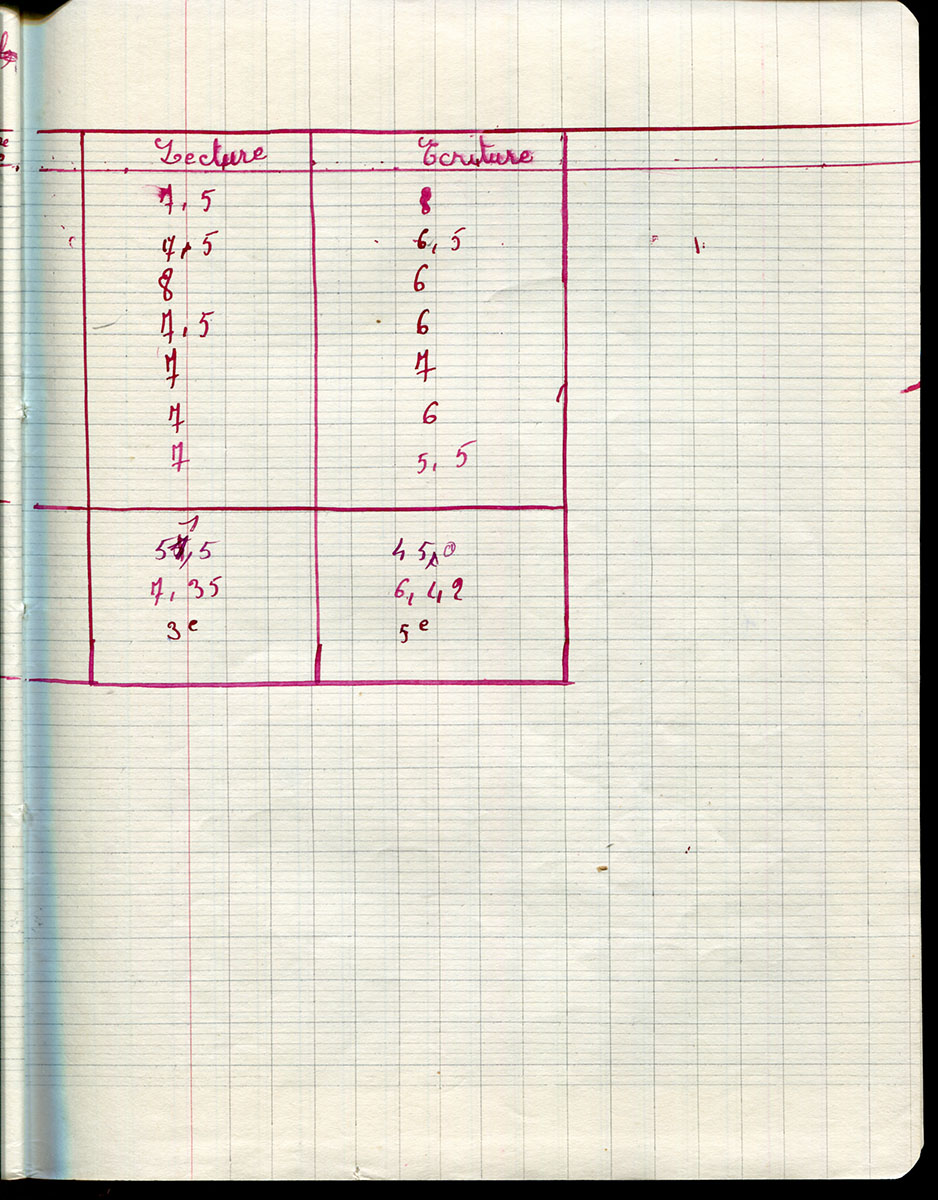 Lecture Ecriture
7,5 8
7,5 6,5
8 6
7,5 6
7 7
7 6
7 5,5
51,5 45,0
7,35 6,42
3e 5e